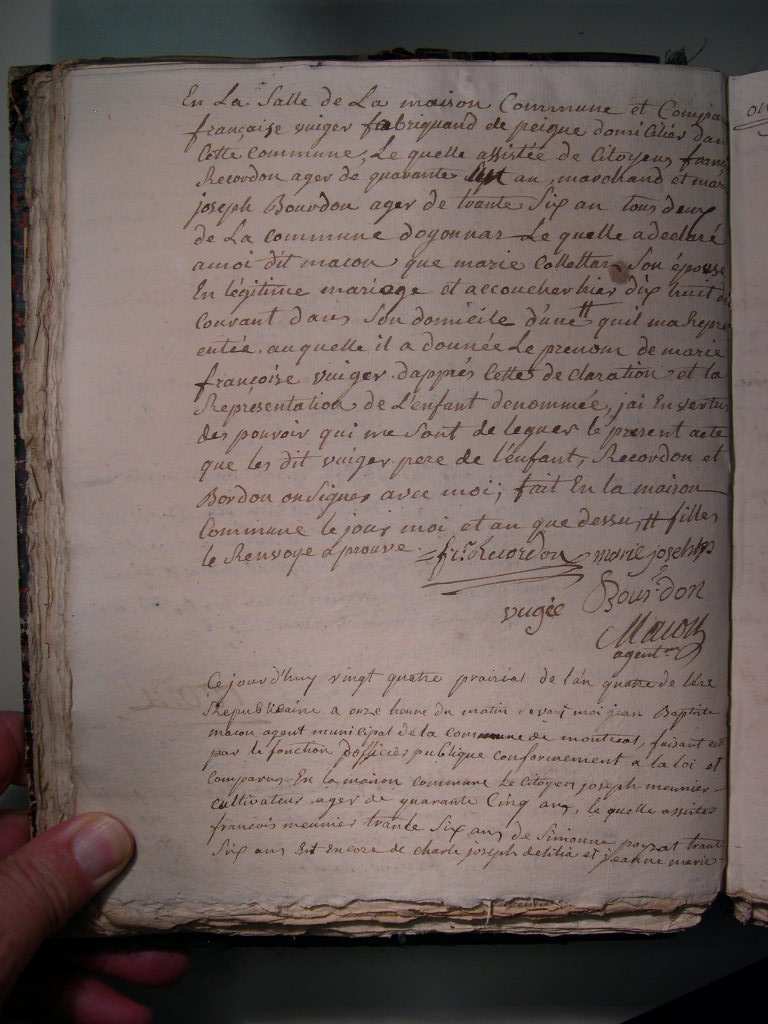 En La Salle de La maison Commune et Compar
françoise vuiger fabriquand de peique domiciliés dan
Cette commune, Le quelle assistée de Citoyens franç
Recordon ager de quarante Sept an, marchand et mar
joseph Bourdon ager de trante Six an tous deux
de La commune doyonnax Le quelle a declaré
amoi dit macon que marie Collettar Son épouse
En légitime mariage et accoucher hier dix huit du
Courant dans Son domicile d'une # quil ma Repre
entée. auquelle il a donnée Le prenom de marie
françoise vuiger. dapprés Cette declaration et la
Représentation de L'enfant denommée, jai En vertu
des pouvoir qui me Sont delegues le present acte
que les dit vuiger pere de l'enfant, Recordon et
Bordon on Signer avec moi; fait En la maison
Commune le jour moi et an que dessu, # filles
le Renvoye aprouve. fr.s Recordon marie joseph
vugée Bourdon
Macon
agent
Ce jourd'huy vingt quatre prairial de l'an quatre de l'ère
Republicaine a onze heure du matin devant moi jean Baptiste
macon agent municipal de la commune de montreal, faisant
par le fonction d'officiés publique conformement a la loi et
Comparus En la maison commune Le Citoyen joseph meunier
Cultivateur ager de quarante Cinq ans, le quelle assistes
francois meunier trante Six ans de Simonne trant
Six ans Est Encore de charle joseph delilia et jeanne marie